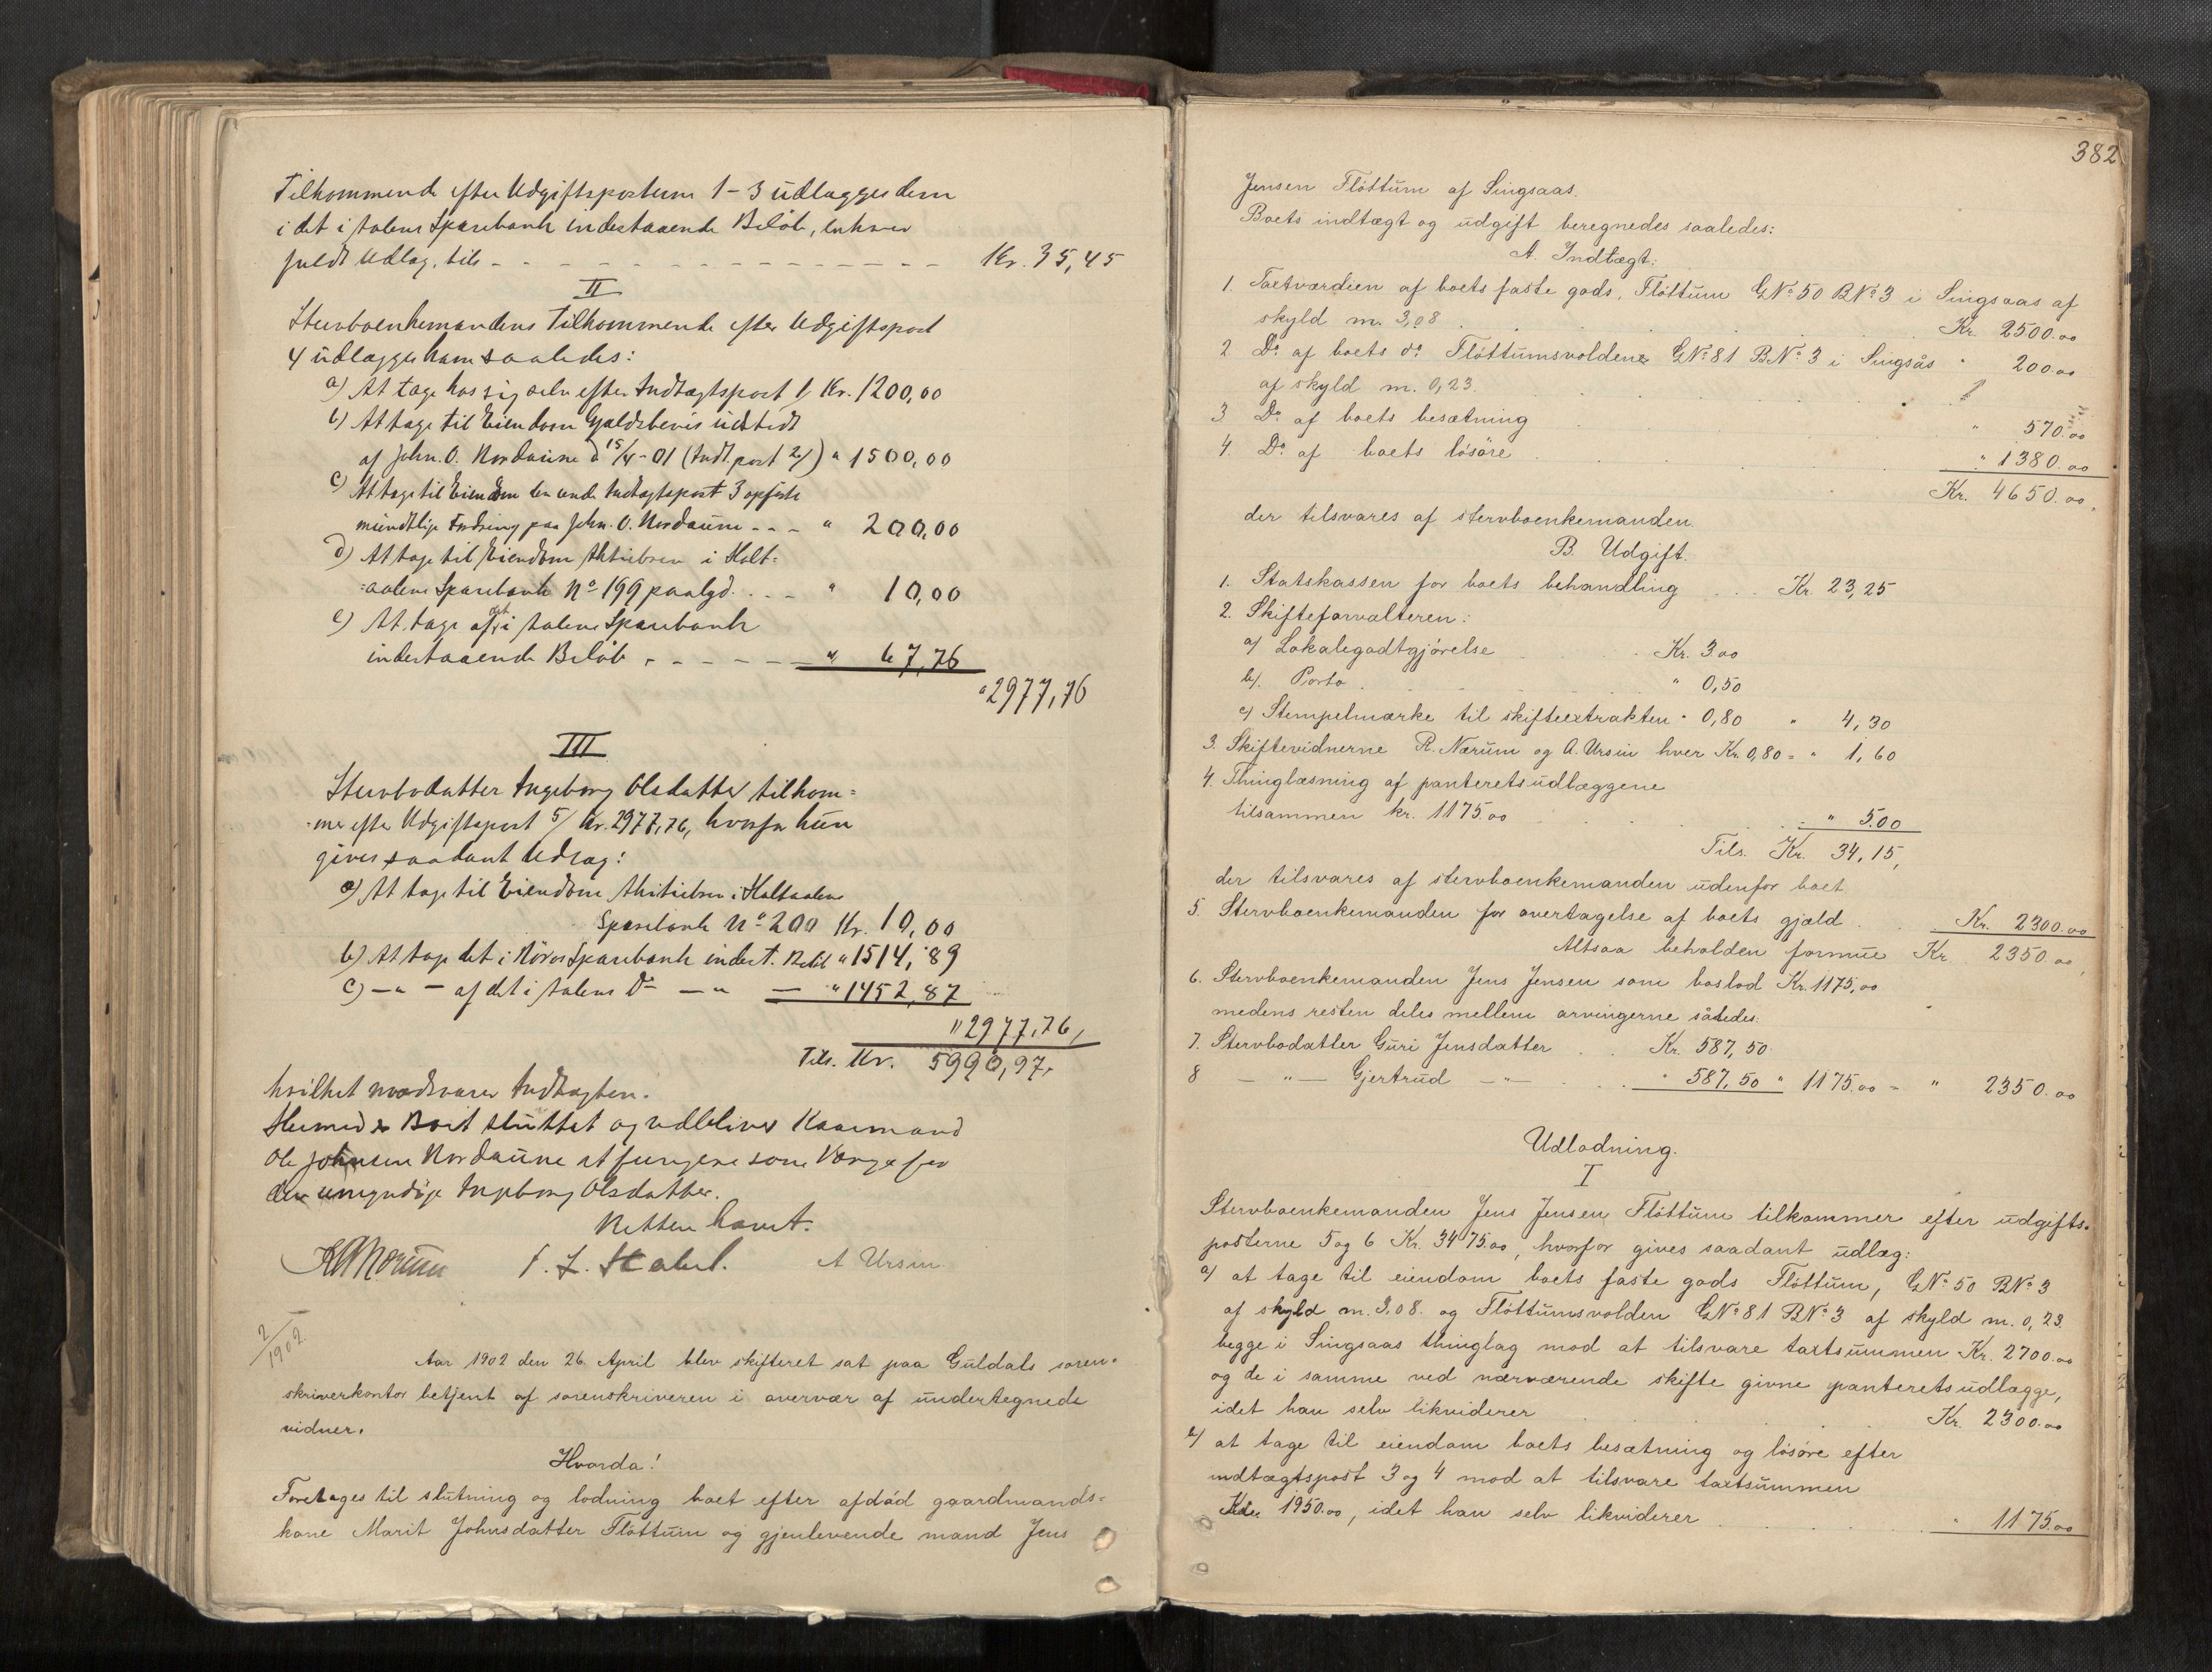 Tilkommende efter Udgiftsposterne 1-3 udlægges dem
i det i Aalens Sparebank indestaaende Beløb, enhver
fuldt Udlæg, tils - - - - Kr. 35,45
II
Stervboenkemandens Tilkommende efter Udgiftspost
4 udlægges ham saaledes:
a) At tage hos sig selv efter Indtægtspost 1/ Kr. 1200,00
b) At tage til Eiendom Gjældsbevis udstedt
af John. O. Nordaune d 15/4-01 (Indt. post 2/) " 1500,00
c) At tage til Eiendom den under Indtægtspost 3 opførte
mundtlige Fordring paa John. O. Nordaune - - - " 200,00
d) At tage til Eiendom Aktiebrev i Holt=
=aalens Sparebank No 199 paalyd. . . - " 10,00
e) At tage af det i Aalens Sparebank
indestaaende Beløb - - - - - " 67,76
" 2977,76
III
Stervbodatter Ingeborg Olsdatter tilkom=
-mer efter Udgiftspost 5/ Kr. 2977,76, hvorfor hun
gives saadant Udlæg:
a) At tage til Eiendom Aktiebrev i Holtaalens
Sparebank No 200 Kr. 10,00
b) At tage det i Røros Sparebank indest. Beløb " 1514,89
c) — " — af det i Aalens Do — " — " 1452,87
" 2977,76,
Tils. Kr. 5990,97.
hvilket modsvarer Indtægten.
Hermed er Boet sluttet og vedbliver Kaarmand
Ole Johnsen Nordaune at fungere som Værge for
den umyndige Ingeborg Olsdatter.
Retten hævet.
A Ursin.
2/1902.
Aar 1902 den 26 April blev skifteret sat paa Guldals soren-
skriverkontor betjent af sorenskriveren i overvær af undertegnede
vidner.
Hvorda!
Foretages til slutning og lodning boet efter afdød gaardmands=
kone Marit Johnsdatter Fløttum og gjenlevende mand Jens
382
Jensen Fløttum af Singsaas.
Boets indtægt og udgift beregnedes saaledes:
A. Indtægt:
1. Taxtværdien af boets faste gods, Fløttum GNo 50 BNo 3 i Singsaas af
skyld m. 3,08 . . . Kr. 2500.00
2 Do af boets do Fløttumsvolden GNo 81 BNo 3 i Singsås " 200.00
af skyld m. 0,23.
3 Do af boets besætning . . . " 570.00
4. Do af boets løsøre . . . " 1380.00
Kr. 4650.00,
der tilsvares af stervboenkemanden.
B. Udgift.
1. Statskassen for boets behandling . . . Kr. 23,25
2. Skifteforvalteren:
a) Lokalegodtgjørelse . . Kr. 3.00
b). Porto . . . " 0,50
c) Stempelmærke til skifteextrakten " 0,80 " 4,30
3. Skiftevidnerne R. Nærum og A. Ursin hver Kr. 0,80 = " 1,60
4. Thinglæsning af panteretsudlæggene
tilsammen kr. 1175.00 . . . " 5.00
Tils. Kr. 34,15,
der tilsvares af stervboenkemanden udenfor boet.
5. Stervboenkemanden for overtagelse af boets gjæld . . Kr. 2300.00
Altsaa beholden formue Kr. 2350.00,
6. Stervboenkemanden Jens Jensen som boslod Kr. 1175,00
medens resten deles mellem arvingerne således:
7. Stervbodatter Guri Jensdatter . . Kr. 587,50
8 — " — Gjertrud — " — . . " 587,50 " 1175.00 = " 2350.00
Udlodning.
I
Stervboenkemanden Jens Jensen Fløttum tilkommer efter udgifts-
posterne 5 og 6 Kr. 3475.00, hvorfor gives saadant udlæg:
a) at tage til eiendom boets faste gods Fløttum, GNo 50 BNo 3
af skyld m. 3,08. og Fløttumsvolden GNo 81 BNo 3 af skyld m. 0,23.
begge i Singsaas thinglag mod at tilsvare taxtsummen Kr. 2700.00
og de i samme ved nærværende skifte givne panteretsudlægge,
idet han selv likviderer . . . Kr. 2300.00
b) at tage til eiendom boets besætning og løsøre efter
indtægtspost 3 og 4 mod at tilsvare taxtsummen
Kr. 1950.00, idet han selv likviderer . . . " 1175.00